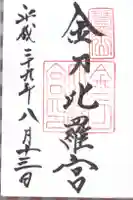 金刀比羅宮
平成二十九年八月十三日